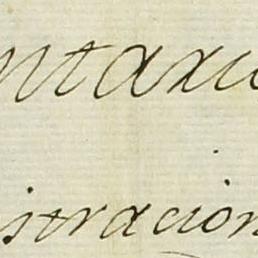 ntaxu
istracion